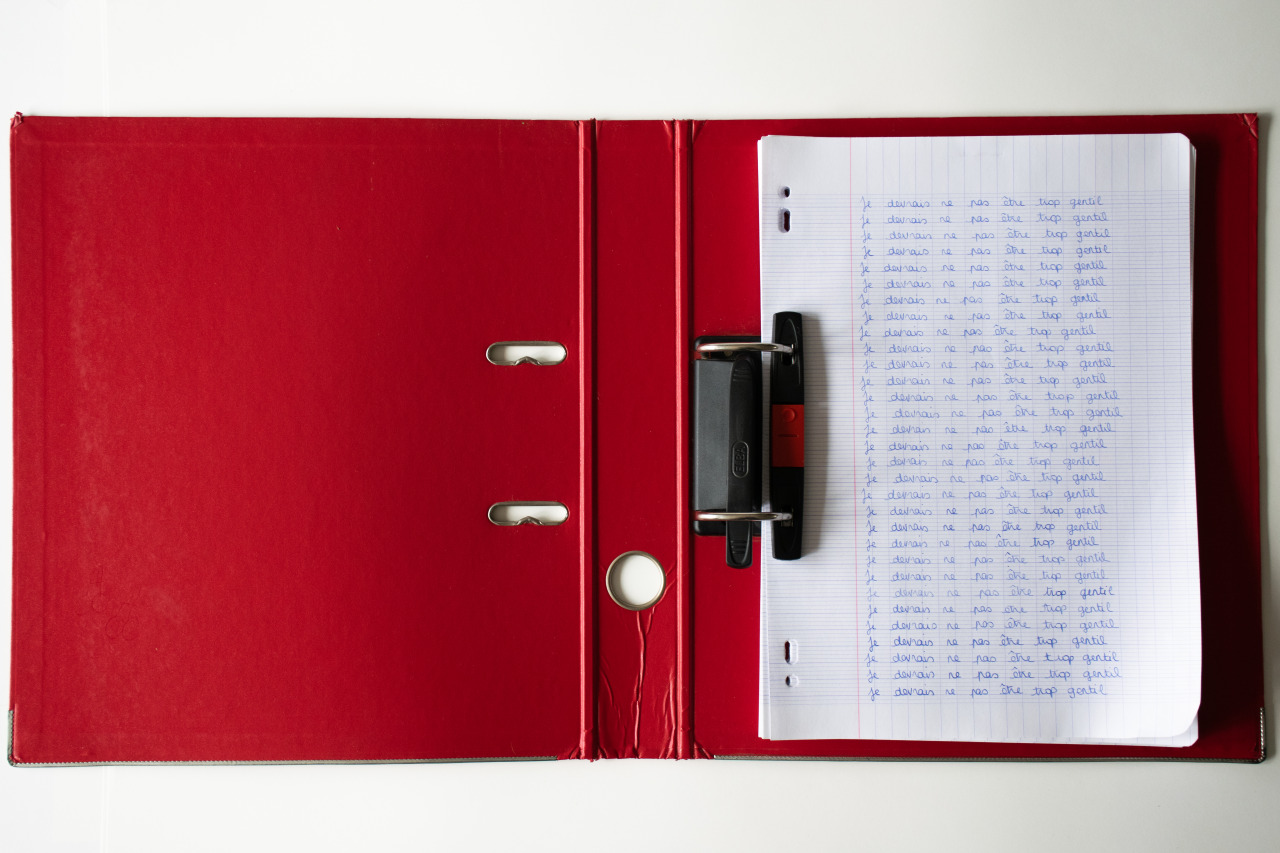 ELBA
Je devrais ne pas être trop gentil
Je devrais ne pas être trop gentil
Je devrais ne pas être trop gentil
Je devrais ne pas être trop gentil
Je devrais ne pas être trop gentil
Je devrais ne pas être trop gentil
Je devrais ne pas être trop gentil
Je devrais ne pas être trop gentil
Je devrais ne pas être trop gentil
Je devrais ne pas être trop gentil
Je devrais ne pas être trop gentil
Je devrais ne pas être trop gentil
Je devrais ne pas être trop gentil
Je devrais ne pas être trop gentil
Je devrais ne pas être trop gentil
Je devrais ne pas être trop gentil
Je devrais ne pas être trop gentil
Je devrais ne pas être trop gentil
Je devrais ne pas être trop gentil
Je devrais ne pas être trop gentil
Je devrais ne pas être trop gentil
Je devrais ne pas être trop gentil
Je devrais ne pas être trop gentil
Je devrais ne pas être trop gentil
Je devrais ne pas être trop gentil
Je devrais ne pas être trop gentil
Je devrais ne pas être trop gentil
Je devrais ne pas être trop gentil
Je devrais ne pas être trop gentil
Je devrais ne pas être trop gentil
Je devrais ne pas être trop gentil